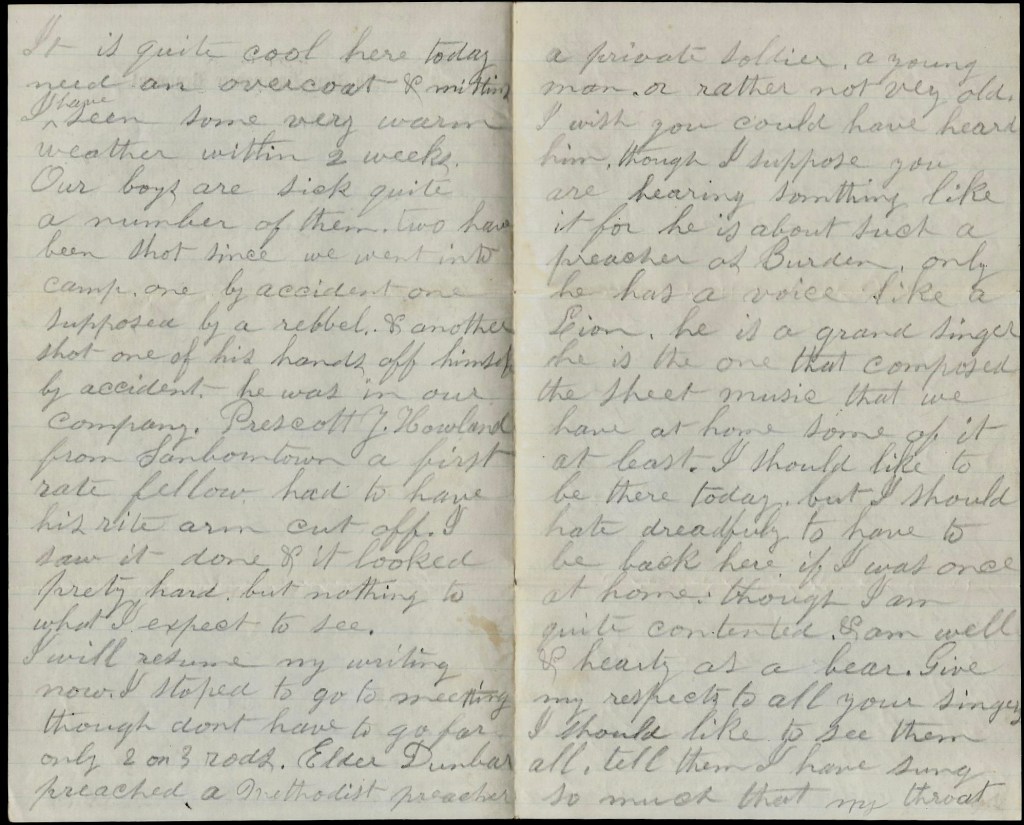 It is quite cool here today
need an overcoat & mittins
I have seen some very warm
weather within 2 weeks.
Our boys are sick quite
a number of them. two have
been shot since we went into
camp. one by accident one
supposed by a rebbel. & another
shot one of his hands off himself
by accident. he was in our
company. Prescott J. Howland
from Sanborntown a first
rate fellow had to have
his rite arm cut off. I
saw it done & it looked
prety hard. but nothing to
what I expect to see.
I will resume my writing
now. I stoped to go to meeting
though dont have to go far
only 2 or 3 rods. Elder Dunbar
preached a Methodist preacher
a private soldier. a young
man. or rather not very old.
I wish you could have heard
him. though I suppose you
are hearing somthing like
it for he is about such a
preacher as Burden. only
he has a voice like a
Lion. he is a grand singer
he is the one that composed
the sheet music that we
have at home some of it
at least. I should like to
be there today. but I should
hate dreadfuly to have to
be back here if I was once
at home. though I am
quite contented. & am well
& hearty as a bear. Give
my respects to all your singers
I should like to see them
all. tell them I have sung
so much that my throat